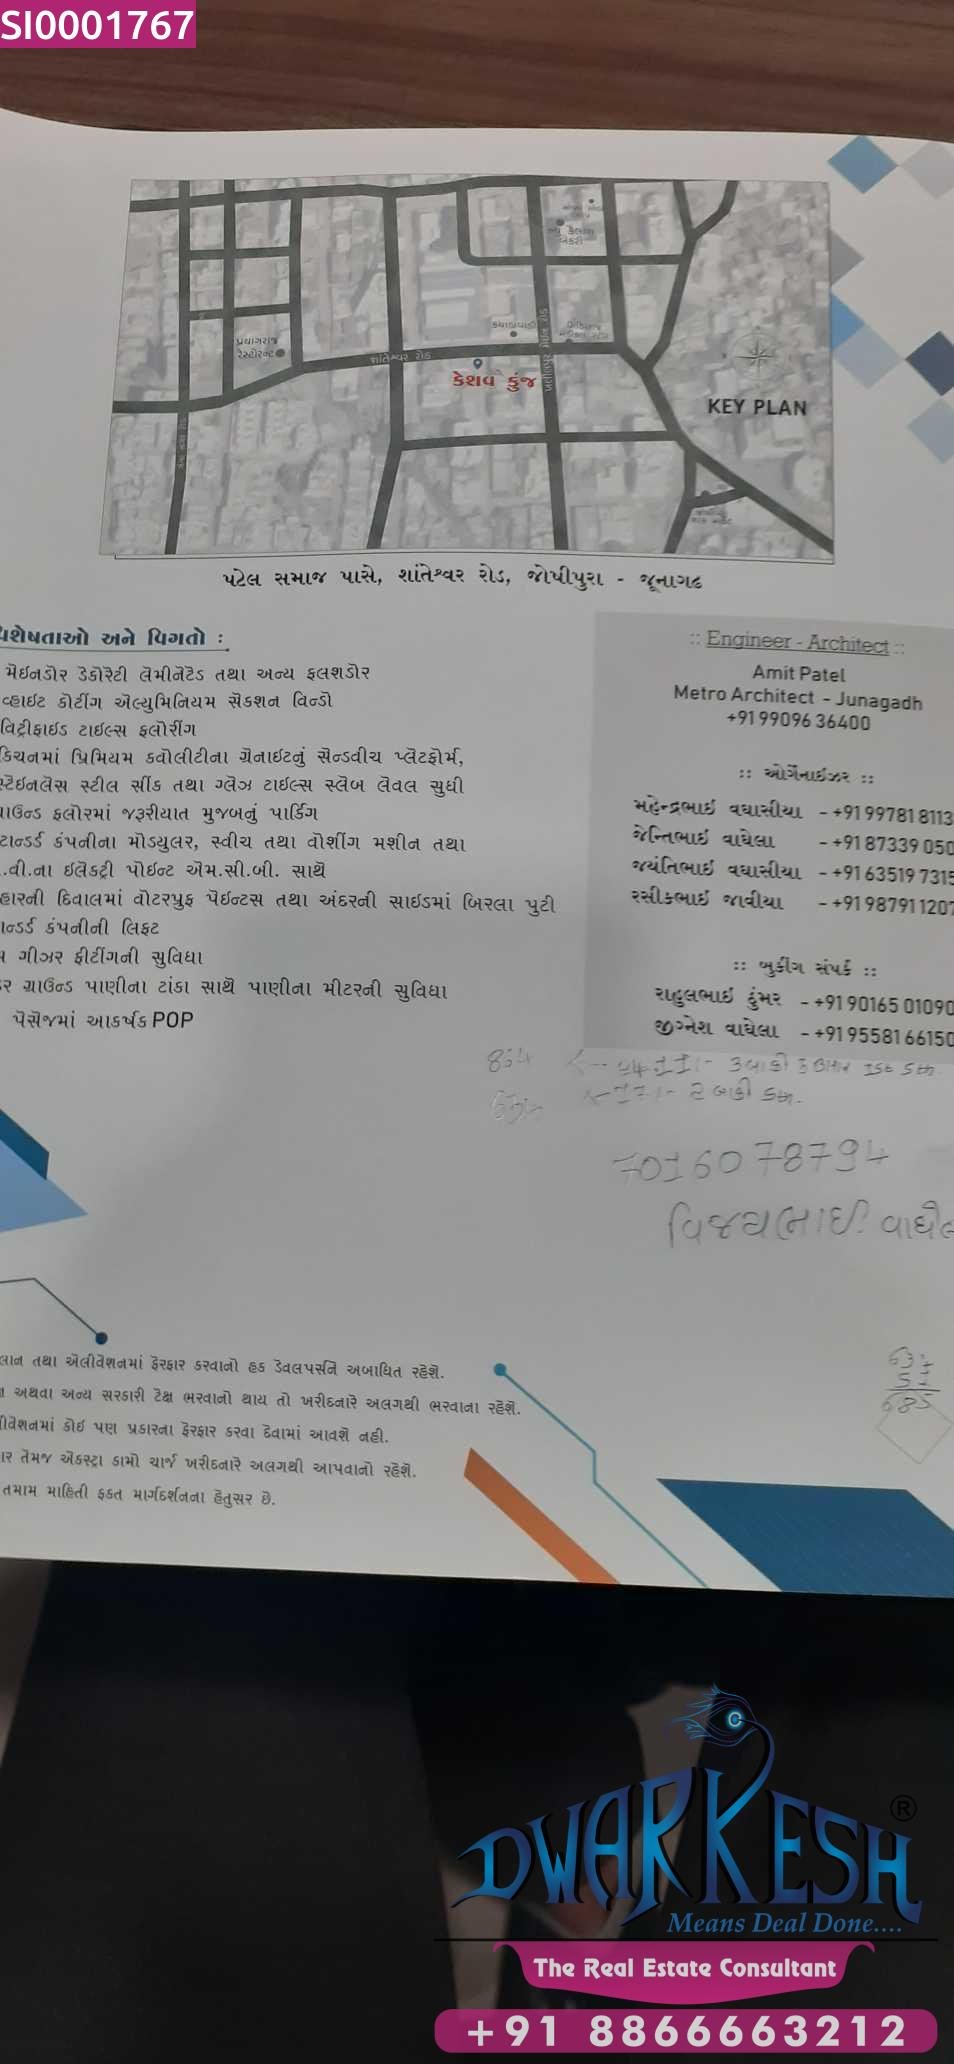 SI0001767
પ્રયાગરાજ
રેસ્ટોરન્ટ
શાંતેશ્વર રોડ
કેશવ કુંજ
KEY PLAN
પટેલ સમાજ પાસે, શાંતેશ્વર રોડ, જોષીપુરા - જૂનાગઢ
વિશેષતાઓ અને વિગતો :
મેઈનડોર ડેકોરેટી લેમીનેટેડ તથા અન્ય ફલશડોર
વ્હાઈટ કોર્ટીંગ એલ્યુમિનિયમ સેકશન વિન્ડો
વિટ્રીફાઈડ ટાઈલ્સ ફલોરીંગ
કિચનમાં પ્રિમિયમ કવોલીટીના ગ્રેનાઈટનું સૅન્ડવીચ પ્લેટફોર્મ,
સ્ટેઈનલેસ સ્ટીલ સીંક તથા ગ્લેઝ ટાઈલ્સ સ્લેબ લેવલ સુધી
ફલોરમાં જરૂરીયાત મુજબનું પાર્કિંગ
કંપનીના મોડયુલર, સ્વીચ તથા વોશીંગ મશીન તથા
.વી.ના ઈલેકટ્રી પોઈન્ટ એમ.સી.બી. સાથે
દિવાલમાં વોટરપ્રુફ પેઈન્ટસ તથા અંદરની સાઈડમાં બિરલા પુટી
કંપનીની લિફટ
ગીઝર ફીટીંગની સુવિધા
ગ્રાઉન્ડ પાણીના ટાંકા સાથે પાણીના મીટરની સુવિધા
પેસેજમાં આકર્ષક POP
:: Engineer - Architect ::
Amit Patel
Metro Architect - Junagadh
+91 99096 36400
:: ઓર્ગેનાઈઝર ::
મહેન્દ્રભાઈ વઘાસીયા - +91 99781 8113
જેન્તિભાઈ વાઘેલા - +91 87339 050
જયંતિભાઈ વઘાસીયા - +91 63519 7315
રસીકભાઈ જાવીયા - +91 98791 1207
:: બુકીંગ સંપર્ક ::
રાહુલભાઈ ડુંમર - +91 90165 01090
જીગ્નેશ વાઘેલા - +91 95581 66150
7016078794
વિજયભાઈ
તથા એલીવેશનમાં ફેરફાર કરવાનો હક ડેવલપર્સને અબાધિત રહેશે.
અથવા અન્ય સરકારી ટેક્ષ ભરવાનો થાય તો ખરીદનારે અલગથી ભરવાના રહેશે.
કોઈ પણ પ્રકારના ફેરફાર કરવા દેવામાં આવશે નહી.
તેમજ એકસ્ટ્રા કામો ચાર્જ ખરીદનારે અલગથી આપવાનો રહેશે.
તમામ માહિતી ફકત માર્ગદર્શનના હેતુસર છે.
DWARKESH ®
Means Deal Done....
The Real Estate Consultant
+91 8866663212